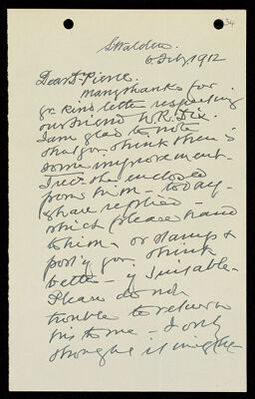 34
S. Walden.
6 July, 1912
Dear Dr. Pierce.
Many thanks for
yr. kind letter respecting
our friend W. R. Dix.
I am glad to note
that you think there is
some improvement.
the enclosed
from him - to-day -
& have replied -
which please hand
to him, or stamp &
post if you think
better - if suitable.
Please do not
trouble to return
his to me - I only
thought it might